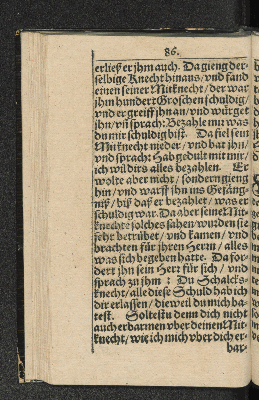 86.
erließ er jhm auch. Da gieng der-
selbige Knecht hinaus / vnd fand
einen seiner Mitknecht / der war
jhm hundert Groschen schuldig /
vnd er greiff jhn an / vnd würget
jhn / vñ sprach: Bezahle mir was
du mir schuldig bist. Da fiel sein
Mitknecht nieder / vnd bat jhn /
vnd sprach: Hab gedult mit mir /
ich wil dirs alles bezahlen. Er
wolte aber nicht / sondern gieng
hin / vnd warff jhn ins Gefäng-
niß / biß daß er bezahlet / was er
schuldig war. Da aber seine Mit-
knechte solches sahen / wurden sie
sehr betrübet / vnd kamen / vnd
brachten für jhren Herrn / alles
was sich begeben hatte. Da for-
dert jhn sein Herr für sich / vnd
sprach zu jhm : Du Schalcks-
knecht / alle diese Schuld hab ich
dir erlassen / dieweil du mich ba-
test. Soltestu denn dich nicht
auch erbarmen vber deinen Mit-
knecht / wie ich mich vber dich er-
bar-